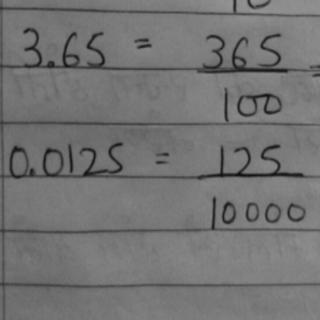 3.65 = 365/100 =
0.0125 = 125/10000